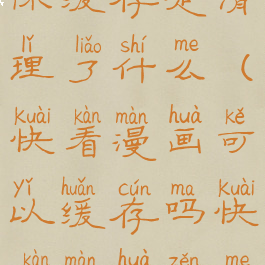 缓存是清
lǐ liǎo shí me
理了什么（
Kuài kàn màn huà kě
快看漫画可
yǐ huǎn cún ma Kuài
以缓存吗快
kàn màn huà zěn me